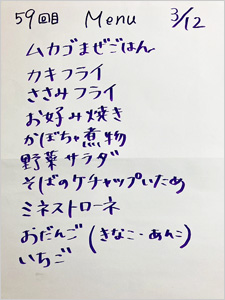 59回目 Menu 3/12
ムカゴまぜごはん
カキフライ
ささみフライ
お好み焼き
かぼちゃ煮物
野菜サラダ
そばのケチャップいため
ミネストローネ
おだんご(きなこ・あんこ)
いちご